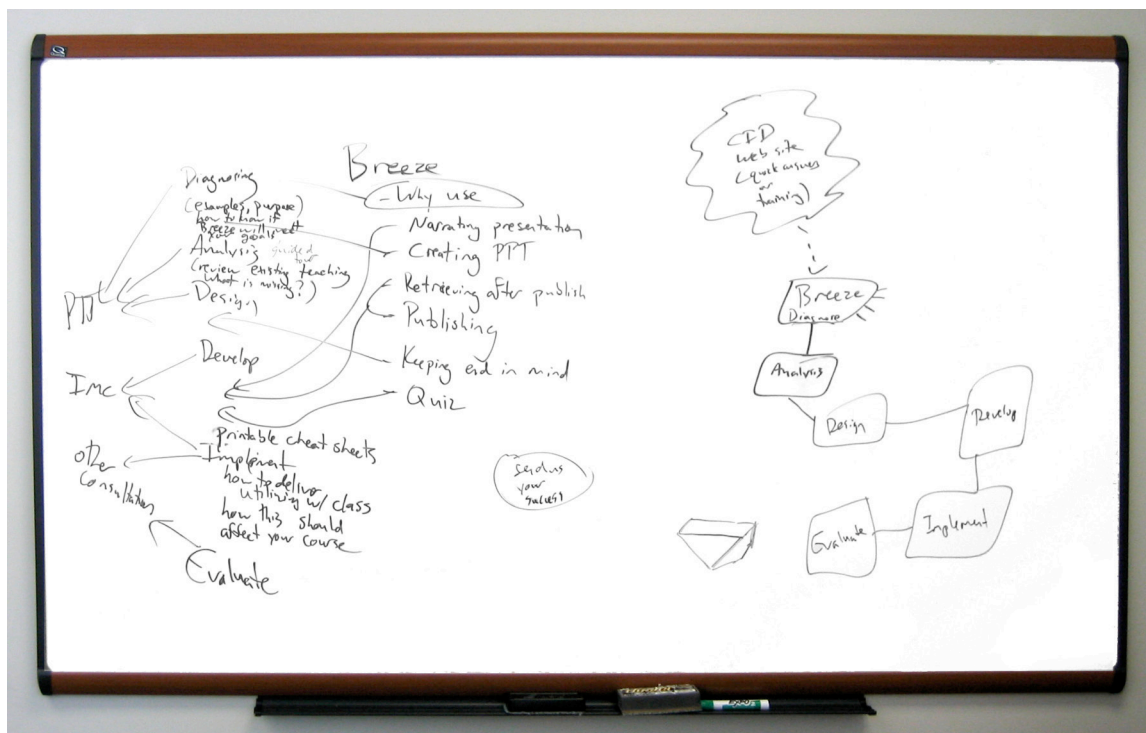 Diagnosing
(examples, purpose)
how to know if
Breeze will meet
your goals
Analysis guided
tour
(review existing teaching
what is missing?)
Design
Develop
printable cheat sheets
Implement
how to deliver
utilizing w/ class
how this should
affect your course
Evaluate
IMC
other
Consultation
Breeze
- Why use
Narrating presentation
Creating PPT
Retrieving after publish
Publishing
Keeping end in mind
Quiz
send us
your
Web site
(quick answers
or
training)
Breeze
Diagnose
Analysis
Design
Develop
Implement
Evaluate
EXPO